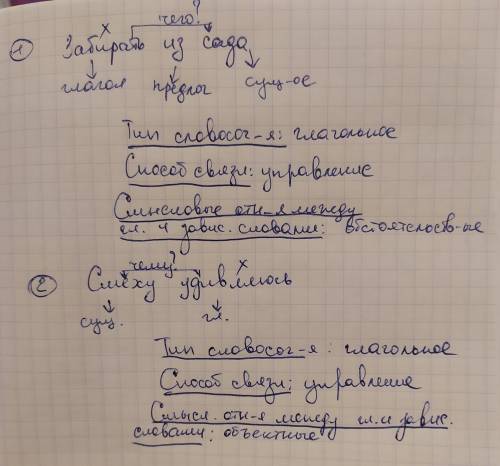 х чего?
1 Забирать из сада
глагол предлог сущ-ое
Тип словосоч-я: глагольное
Способ связи: управление
Смысловые отн-я между
гл. и завис. словами: обстоятельств-ые
чему? х
2 Смеху удивляюсь
сущ. гл.
Тип словосоч-я: глагольное
Способ связи: управление
Смысл. отн-я между гл. и завис.
словами: объектные